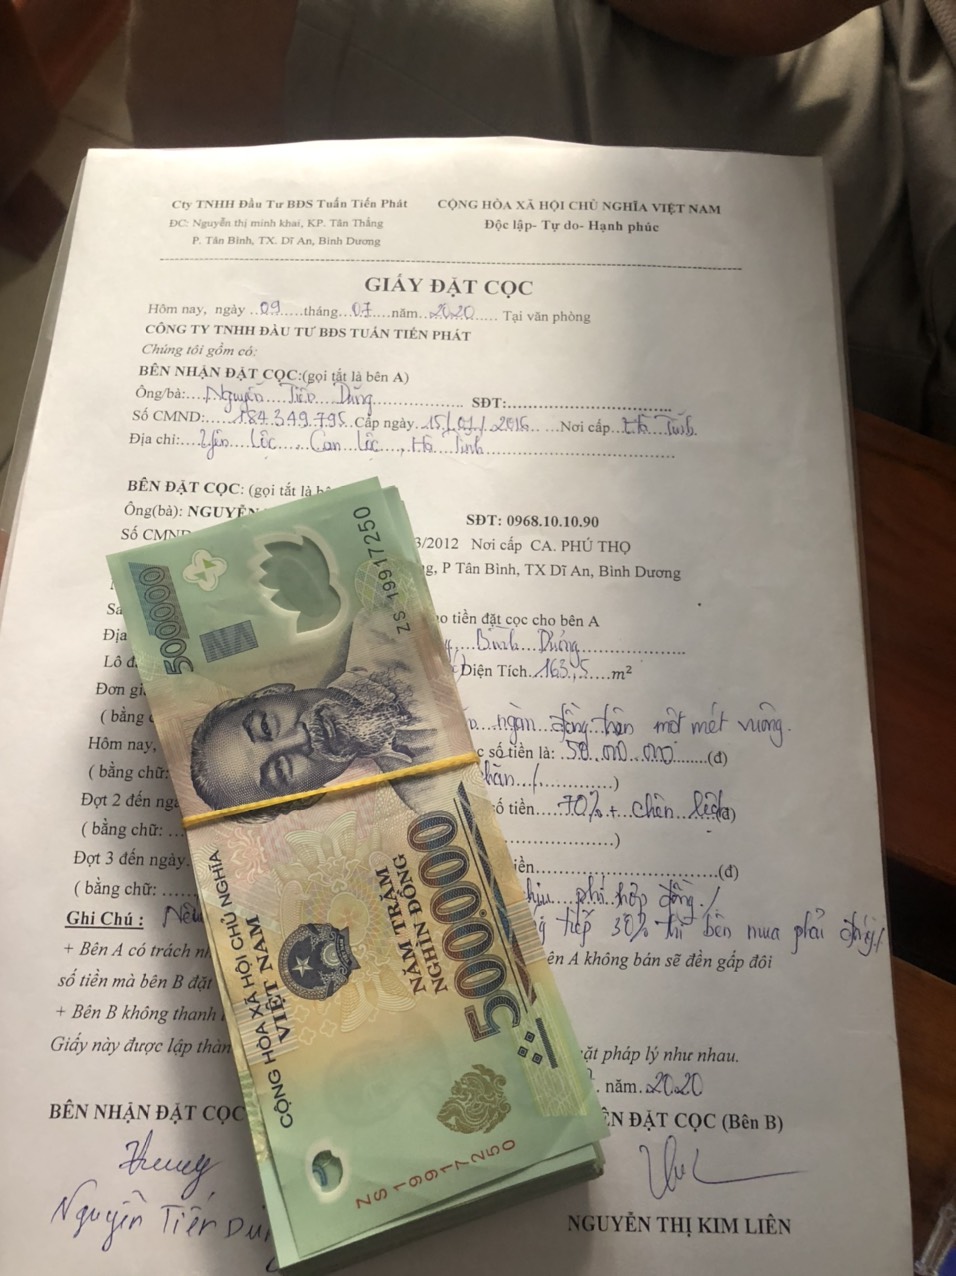 Cty TNHH Đầu Tư BĐS Tuấn Tiến Phát
CỘNG HÒA XÃ HỘI CHỦ NGHĨA VIỆT NAM
ĐC: Nguyễn thị minh khai, KP. Tân Thắng
Độc lập- Tự do- Hạnh phúc
P. Tân Bình, TX. Dĩ An, Bình Dương
GIẤY ĐẶT CỌC
Hôm nay, ngày ..09....tháng...07....năm...2020..... Tại văn phòng
CÔNG TY TNHH ĐẦU TƯ BĐS TUẤN TIẾN PHÁT
Chúng tôi gồm có:
BÊN NHẬN ĐẶT CỌC:(gọi tắt là bên A)
Ông/bà:....Nguyễn Tiến Dũng.................. SĐT:..............................
Số CMND:.....184.349.795..Cấp ngày..15/01/2016.....Nơi cấp...Hà Tĩnh
Địa chỉ:...Yên Lộc, Can Lộc, Hà Tĩnh..............................
BÊN ĐẶT CỌC: (gọi tắt là
Ông(bà): NGUYỄN
SĐT: 0968.10.10.90
Số CMND
3/2012 Nơi cấp CA. PHÚ THỌ
g, P Tân Bình, TX Dĩ An, Bình Dương
tiền đặt cọc cho bên A
Địa
Bình Dương
Lô đ
Diện Tích..163,5....m²
Đơn gi
( bằng
ngàn đồng trên một mét vuông.
Hôm nay,
số tiền là: 50.000.000........(đ)
( bằng chữ:
Đợt 2 đến ng
số tiền....70% + chên lệch(đ)
( bằng chữ: ...
Đợt 3 đến ngày.
(đ)
( bằng chữ: ......
Ghi Chú : Nếu
chịu phí hợp đồng./
tiếp 30% thì bên mua phải
+ Bên A có trách nh
ên A không bán sẽ đền gấp đôi
số tiền mà bên B đặt
+ Bên B không thanh
Giấy này được lập thàn
ặt pháp lý như nhau.
năm.2020
BÊN NHẬN ĐẶT CỌC
ÊN ĐẶT CỌC (Bên B)
Nguyễn Tiến Dũn
NGUYỄN THỊ KIM LIÊN
500000
VN
ZS 19917250
CỘNG HÒA XÃ HỘI CHỦ NGHĨA
VIỆT NAM
NĂM TRĂM
NGHÌN ĐỒNG
500.000
ZS 19917250